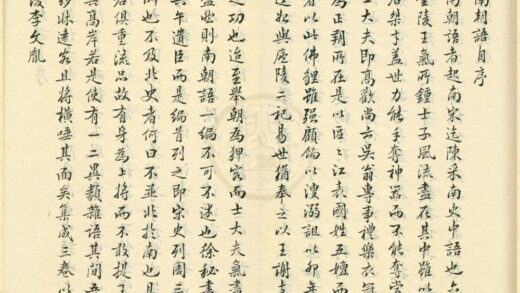 南朝語自序
南朝語者起南宋迄陳采南史中語也六
金陵王氣所鍾士子風流盡在其中雖以
若桀亨蓋世力能手奪神器而不能奪
士大夫即高歡尚云吳翁專事禮樂衣冠
為正朔所在是以區江表國姓五嬗而
者以此佛狸雖強顧偷以溲溺詛以卯年
並如與廬陵二祀易世猶奉之以王謝
之功也迨至舉朝為狎客而士大夫氣盡
盡此則南朝語一編不可不述也徐秘書
其午遺臣而是編首列之即宋史列周三
例也不及北史者何曰不並北於南也且
若俱重流品故有身為上將而不敢提
其高岸若是使有一二異類雜語其間五
鈔咻遠客且將橫唾其面矣集成三卷以
李文胤